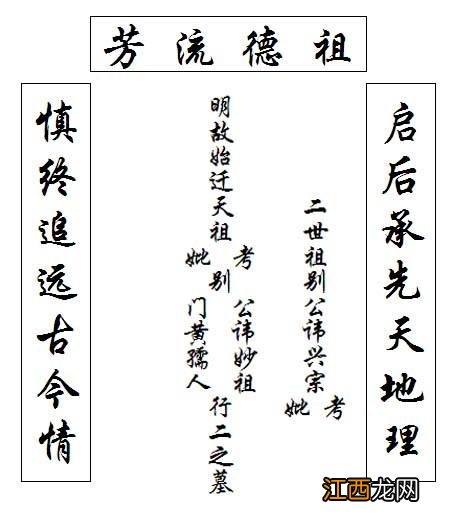 祖德流芳
启后承先天地理
二世祖别公讳兴宗
考
妣
明故始迁天祖
考
妣
别
公讳妙祖
门黄孺人
行二之墓
慎终追远古今情
江西龙网